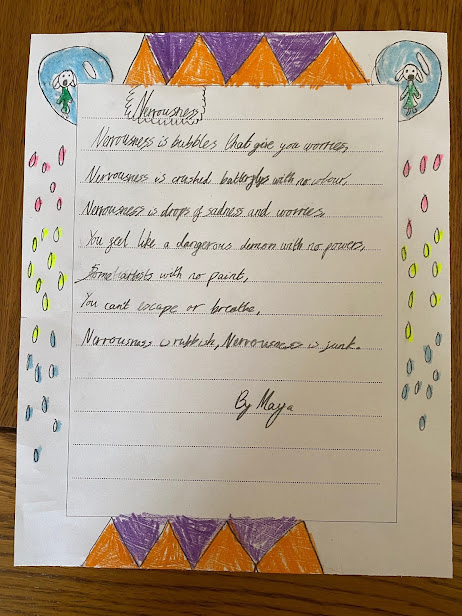 Nervousness
Nervousness is bubbles that give you worries,
Nervousness is crushed butterflys with no colour,
Nervousness is drops of sadness and worries,
You feel like a dangerous demon with no powers,
Some artists with no paint,
You cant escape or breathe,
Nervousness is rubbish, Nervousness is junk.
By Maya